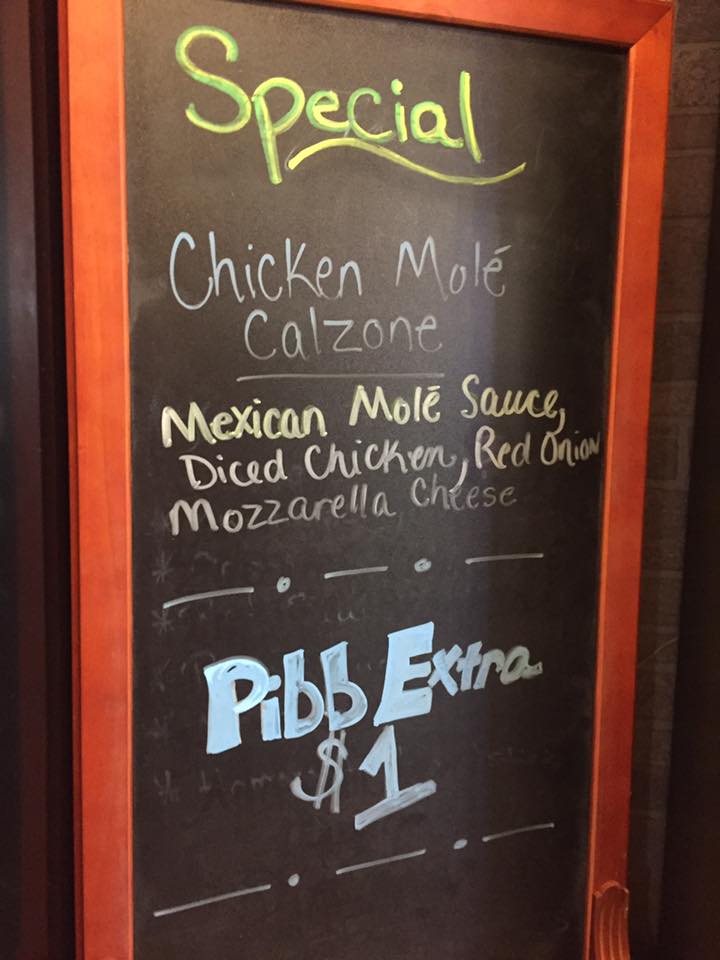 Special
Chicken Molé
Calzone
Mexican Molé Sauce,
Diced Chicken, Red Onion
Mozzarella Cheese
Pibb Extra
$1